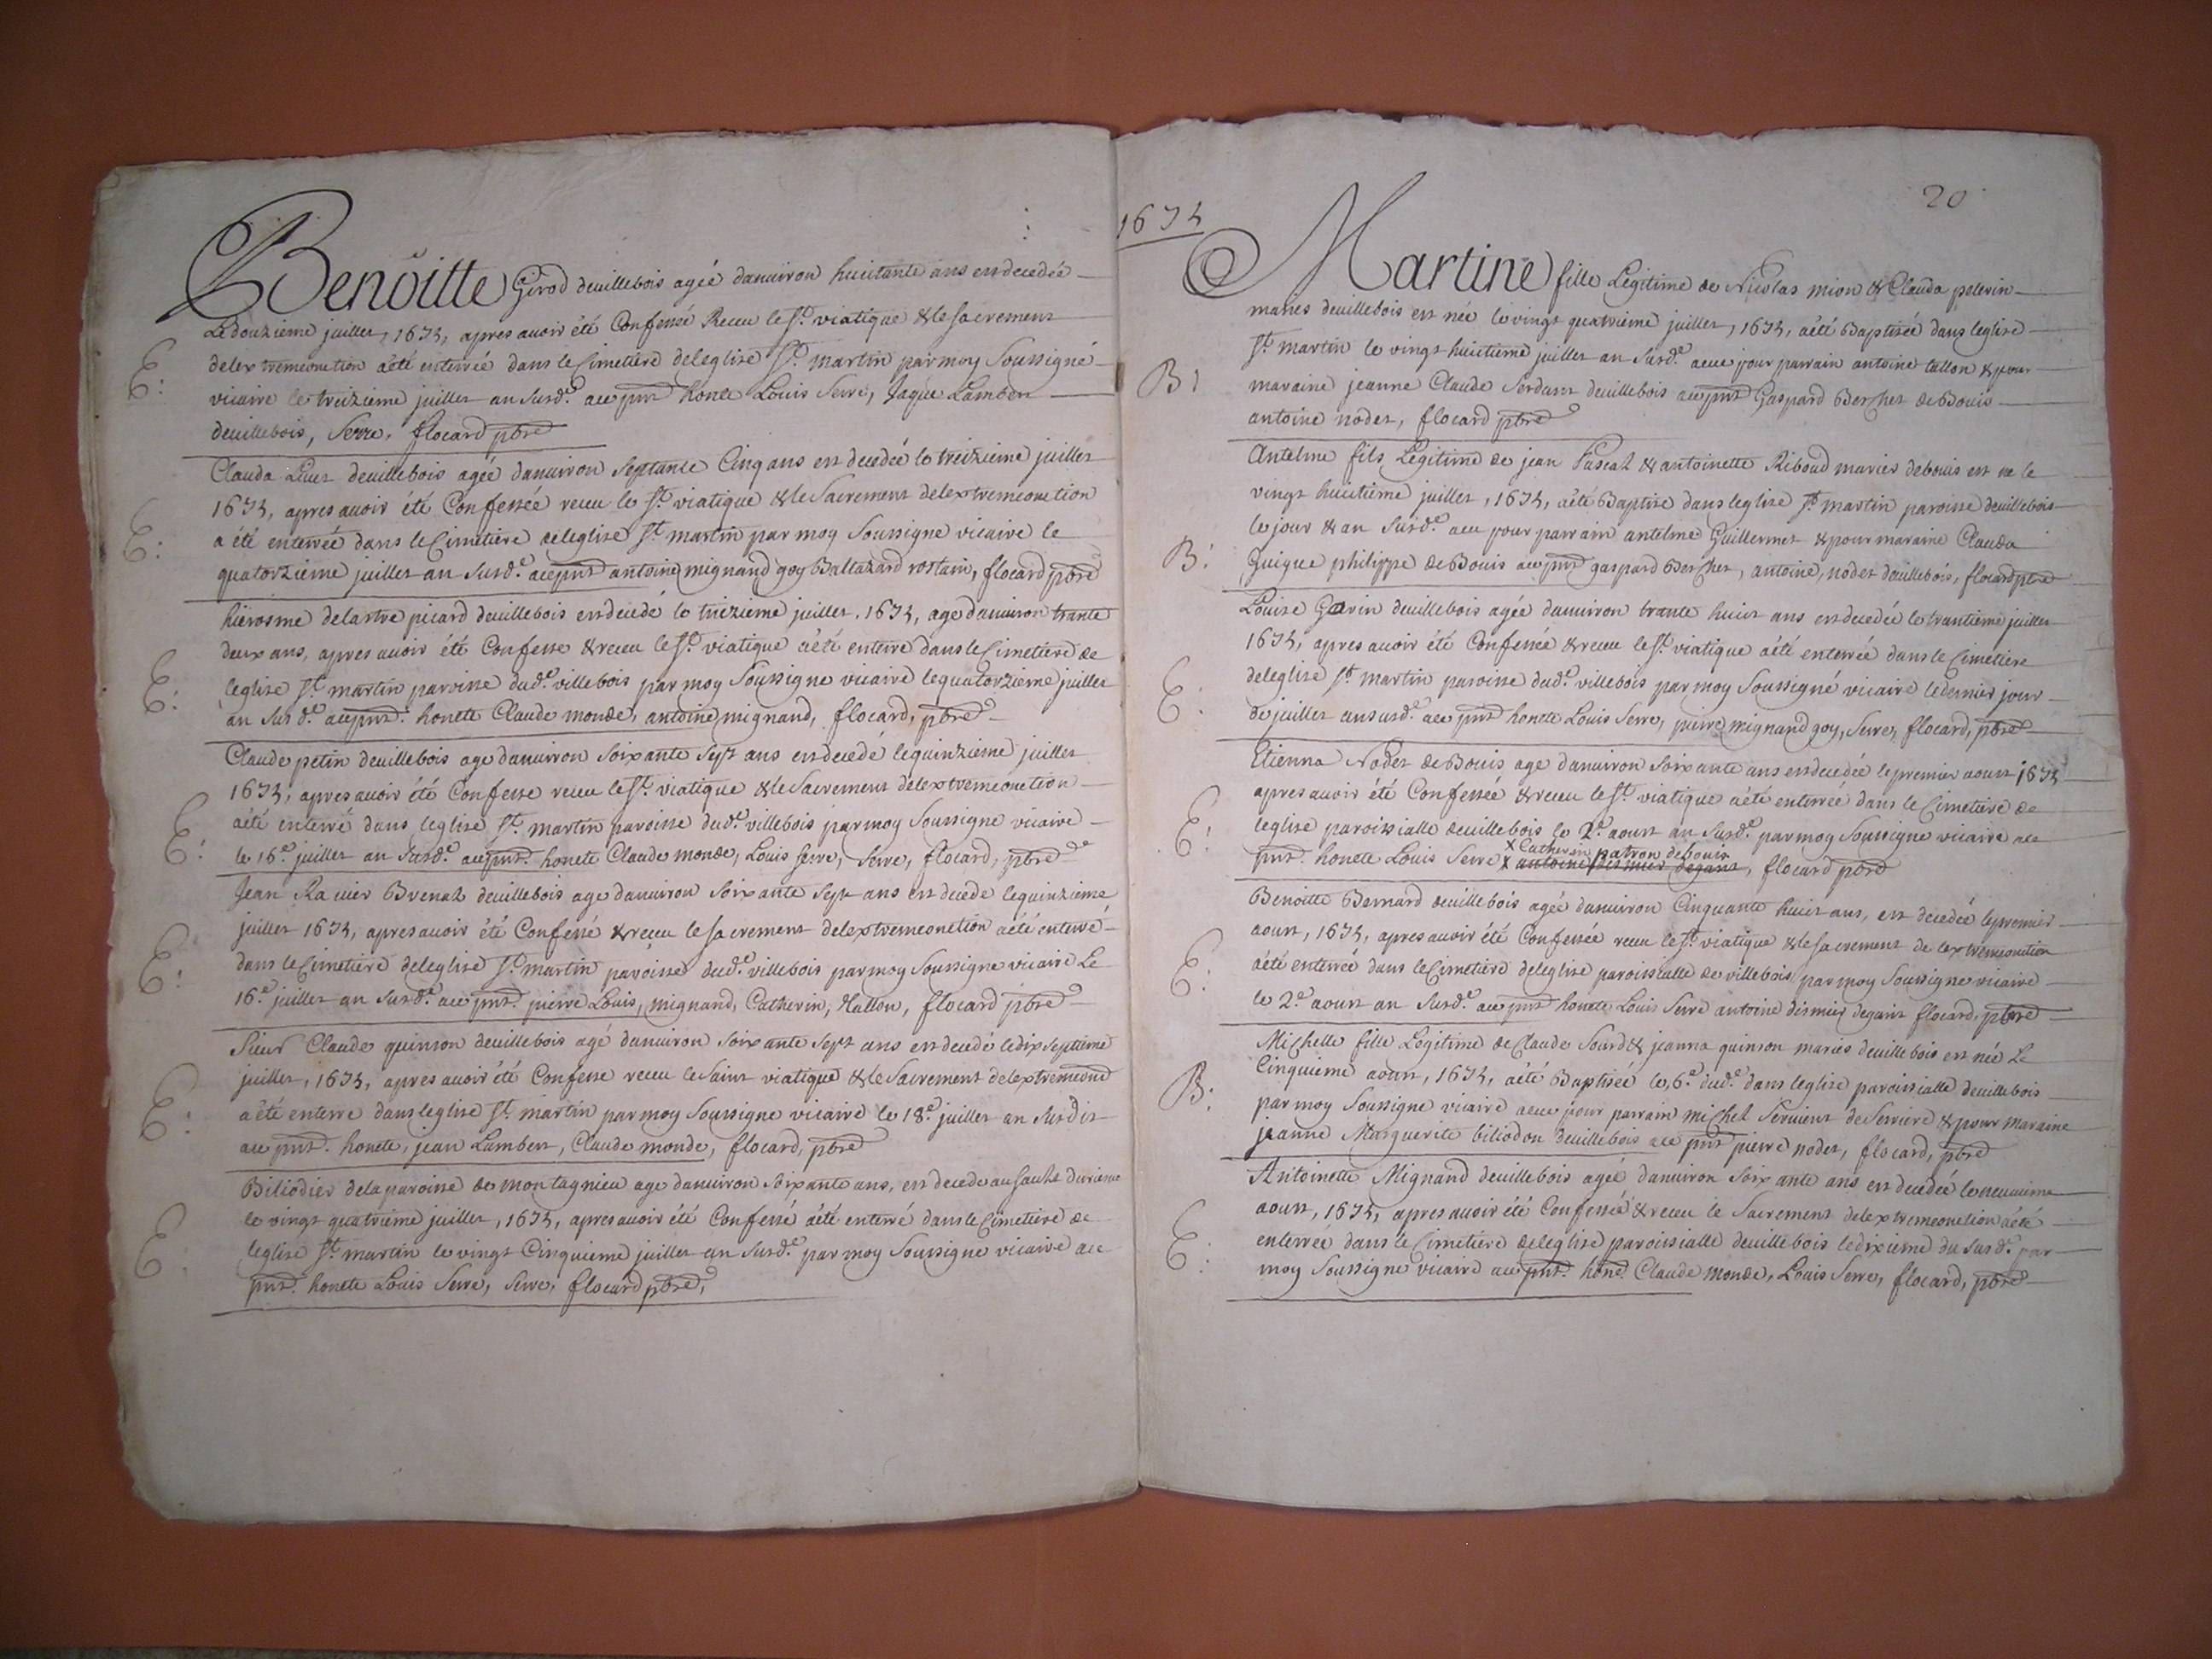 Benoitte Girod deuillebois agée danuiron huictante ans en decedée
Le douzieme juillet, 1674, apres auoir été Confessé Receu le St. viatique & le sacrement
E: delextremeonction aété enterrée dans le Cimetiere deleglise St. martin par moy Soussigné
vicaire le treizieme juillet an susd.e ace pnt honete Louis Serre, Jaque Lambert
deuillebois, Serre, flocard pbre
Claude deuillebois agée danuiron septante Cinq ans est decedée le treizieme juillet
1674, apres auoir été Confessée receu le St. viatique & le Sacrement delextremeonction
E: a été enterrée dans le Cimetiere deleglise St. martin par moy Soussigne vicaire le
quatorzieme juillet an susd.e ace pnt antoine mignand goy Baltazard rostain, flocard pbre
hierosme delastre picard deuillebois est decedé le treizieme juillet, 1674, age danuiron trante
deux ans, apres auoir été Confesse & receu le St. viatique aété enterré dans le Cimetiere de
E: leglise St. martin paroisse dud.e villebois par moy Soussigne vicaire le quatorzieme juillet
an susd.e ace pnt. honete Claude monde, antoine mignand, flocard, pbre
Claude petin deuillebois age danuiron soixante sept ans est decedé le quinzieme juillet
1674, apres auoir été Confesse receu le St. viatique & le Sacrement delextremeonction
E: aété enterré dans leglise St. martin paroisse dud.e villebois par moy Soussigne vicaire
le 16.e juillet an susd.e ace pnt. honete Claude monde, Louis serre, Serre, flocard, pbre
Jean Ravier Brenat deuillebois age danuiron soixante sept ans est decede le quinzieme
juillet 1674, apres auoir été Confessé & receu le sacrement delextremeonction aété enterré
E: dans le Cimetiere deleglise St. martin paroisse dud.e villebois par moy Soussigne vicaire Le
16.e juillet an susd.e ace pnt. pierre Louis, mignand, Catherin, Hatton, flocard pbre
Sieur Claude quinson deuillebois agé danuiron soixante sept ans est decedé le dix septieme
juillet, 1674, apres auoir été Confesse receu le Saint viatique & le Sacrement delextremeonct
E: aété enterre dans leglise St. martin par moy Soussigne vicaire le 18.e juillet an susdit
ace pnt. honete, jean Lambert, Claude monde, flocard, pbre
Biliodier dela paroisse de montagnieu age danuiron soixante ans, est decede au sault
le vingt quatrieme juillet, 1674, apres auoir été Confessé aété enterré dans le Cimetiere de
E: leglise St. martin le vingt Cinquieme juillet an susd.e par moy Soussigne vicaire ace
pnt. honete Louis Serre, Serre, flocard pbre,
1674
20
Martine fille Legitime de Nicolas mion & Clauda pelerin
maries deuillebois est née le vingt quatrieme juillet, 1674, aété Baptisée dans leglise
St. martin le vingt huitieme juillet an susd.e aeue pour parrain antoine tallon & pour
B: maraine jeanne Claude Serdant deuillebois ace pnt Gaspard Berchet de Bouis
antoine nodet, flocard pbre
Antelme fils Legitime de jean Pascal & antoinette Riboud maries debouis est ne le
vingt huitieme juillet, 1674, aété Baptise dans leglise St. martin paroisse deuillebois
le jour & an susd.e aeu pour parrain antelme Guillermet & pour maraine Clauda
B: Guigue philippe de Bouis ace pnt gaspard Berchet, antoine, nodet deuillebois, flocard pbre
Louise Gavin deuillebois agée danuiron trante huict ans est decedée le trantieme juillet
1674, apres auoir été Confessée & receu le St. viatique aété enterrée dans le Cimetiere
E: deleglise St. martin paroisse dud.e villebois par moy Soussigné vicaire le dernier jour
de juillet an susd.e ace pnt honete Louis Serre, pierre mignand goy, Serre, flocard, pbre
Etienna Nodet de Bouis age danuiron soixante ans est decedée le premier aoust 1674
apres auoir été Confessée & receu le St. viatique aété enterrée dans le Cimetiere de
E: leglise paroissialle deuillebois le 2.e aoust an susd.e par moy Soussigne vicaire ace
x Catherin patron debouis
pnt. honete Louis Serre x antoine desmier degant, flocard pbre
Benoitte Bernard deuillebois agée danuiron Cinquante huict ans, est decedée le premier
aoust, 1674, apres auoir été Confessée receu le St. viatique & le sacrement de lextremeonction
E: aété enterrée dans le Cimetiere deleglise paroissialle de villebois par moy Soussigne vicaire
le 2.e aoust an susd.e ace pnt honete Louis Serre antoine desmier degant flocard, pbre
Michelle fille Legitime de Claude Sourd & jeanna quinson maries deuillebois est née Le
Cinquieme aoust, 1674, aété Baptisée le, 6.e dud.e dans leglise paroissialle deuillebois
B: par moy Soussigne vicaire aeue pour parrain michel Seruient deSerriere & pour maraine
jeanne Marguerite biliodon deuillebois ace pnt pierre nodet, flocard, pbre
Antoinette Mignand deuillebois agée danuiron soixante ans est decedée le neuuieme
aoust, 1674, apres auoir été Confessée & receu le Sacrement delextremeonction aété
E: enterrée dans le Cimetiere deleglise paroissialle deuillebois le dixieme du susd.e par
moy Soussigne vicaire ace pnt. hone. Claude monde, Louis Serre, flocard, pbre